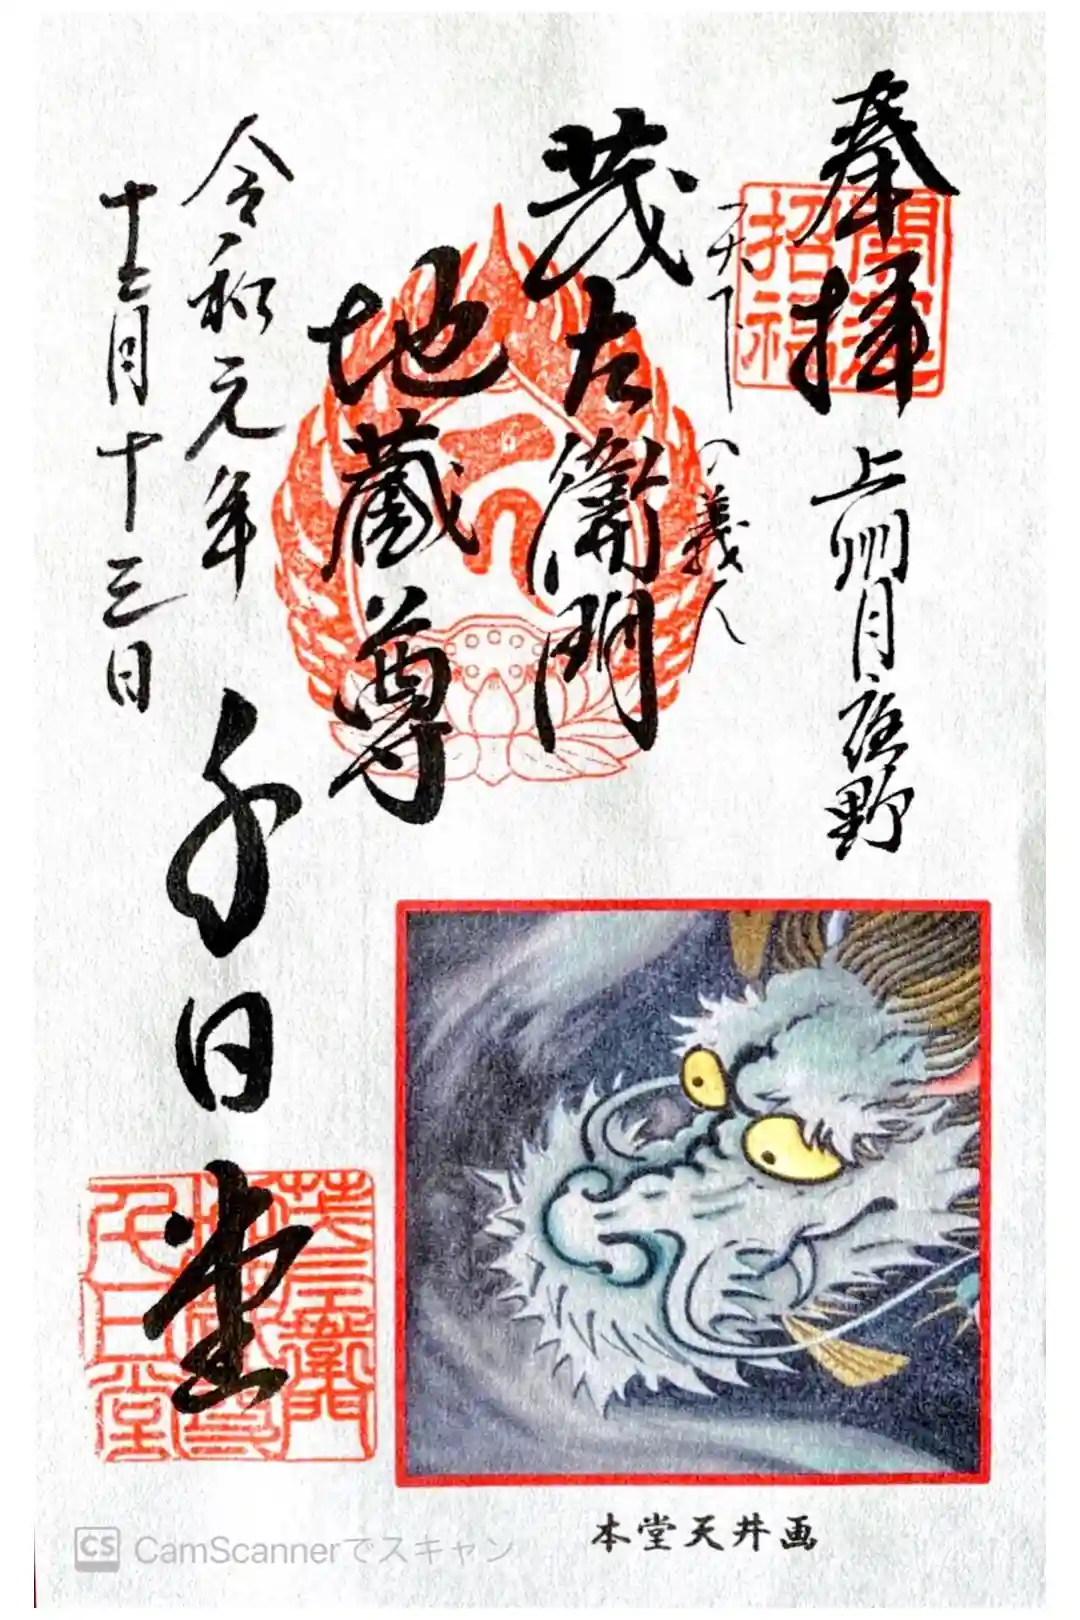 奉拝
上州月夜野
開運
招福
天下の義人
茂左衛門
地蔵尊
令和元年
十二月十三日
千日堂
茂左衛門
地蔵尊
千日堂
本堂天井画
CS CamScannerでスキャン